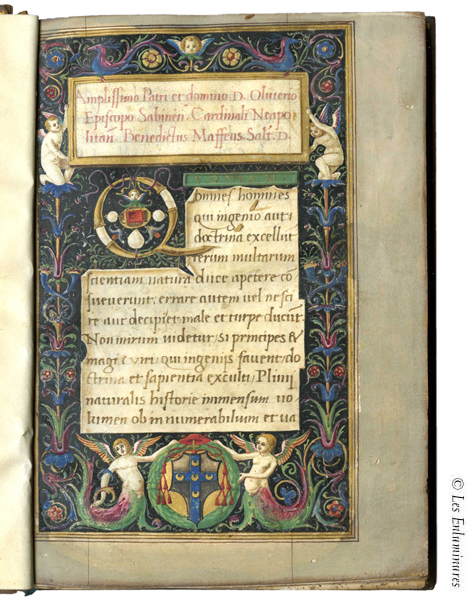 Amplissimo Patri et domino D. Oliuerio
Episcopo Sabinen̄. Cardinali Neapo
litan̄. Benedictus Maffeus Salt. D.
Qomnes homines
qui ingenio aut
doctrina excellūt
rerum multarum
scientiam natura duce apetere cō
sueuerunt: errare autem uel nesci
re aut decipi et male et turpe ducūt.
Non mirum uidetur, si principes &
magi uiri qui ingenijs fauent, do
ctrina et sapientia exculti, Plinij
naturalis historie immensum uo
lumen ob innumerabilium et ua
© Les Enluminures